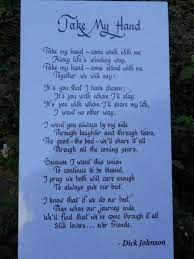 Take My Hand
Take my hand - come walk with me
Along life's winding way.
Take my hand - come stand with me
Together we will say:
It's you that I have chosen;
It's you with whom I'll stay.
It's you with whom I'll share my life,
I want no other way.
I want you always by my side
Through laughter and through tears.
The good - the bad - we'll share it all
Through all the coming years.
Because I want this union
To continue to be blessed,
I pray we both will care enough
To always give our best.
I know that if we do our best
Then when our journey ends,
We'll find that we've come through it all
Still lovers... friends.
- Dick Johnson